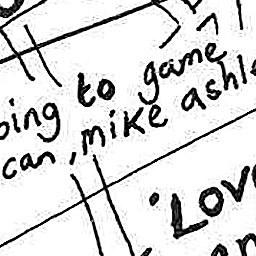 oing to game
can, mike ashle
'Lov